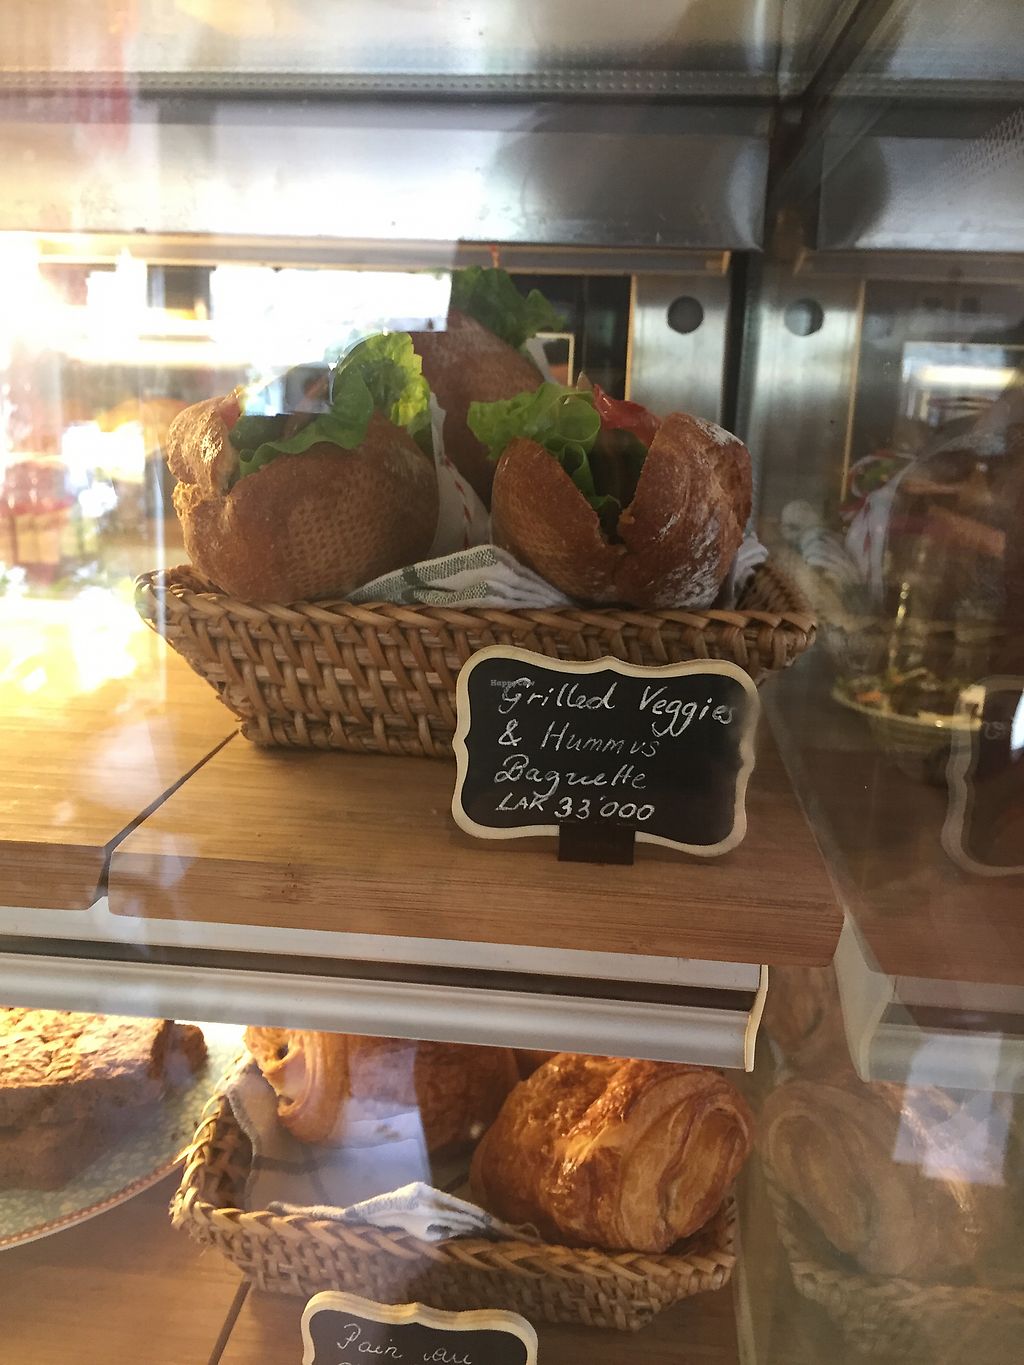 HappyCow
Grilled Veggies
& Hummus
Baguette
LAK 33'000
Pain au